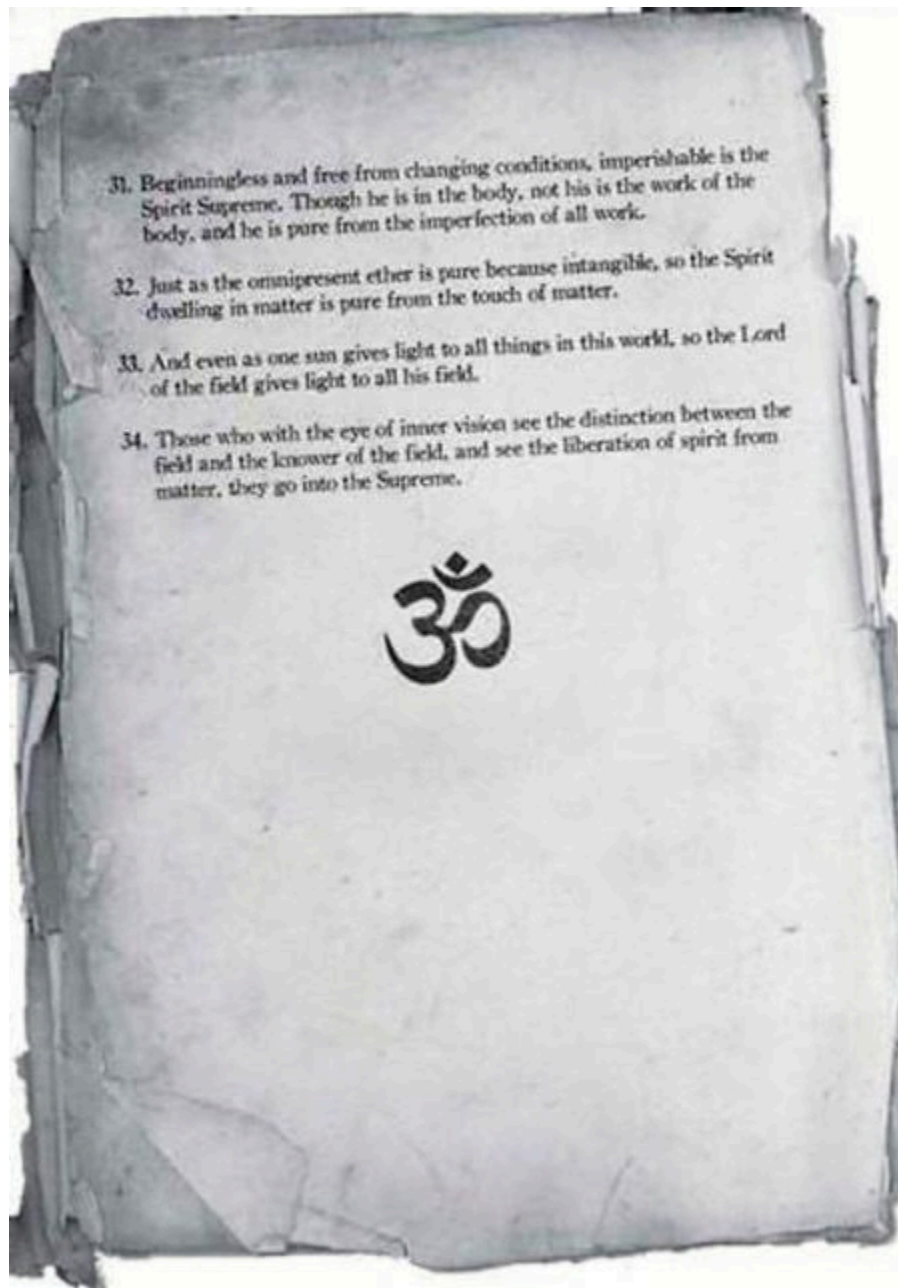 31. Beginningless and free from changing conditions, imperishable is the
Spirit Supreme. Though he is in the body, not his is the work of the
body, and he is pure from the imperfection of all work.
32. Just as the omnipresent ether is pure because intangible, so the Spirit
dwelling in matter is pure from the touch of matter.
33. And even as one sun gives light to all things in this world, so the Lord
of the field gives light to all his field.
34. Those who with the eye of inner vision see the distinction between the
field and the knower of the field, and see the liberation of spirit from
matter, they go into the Supreme.
ॐ